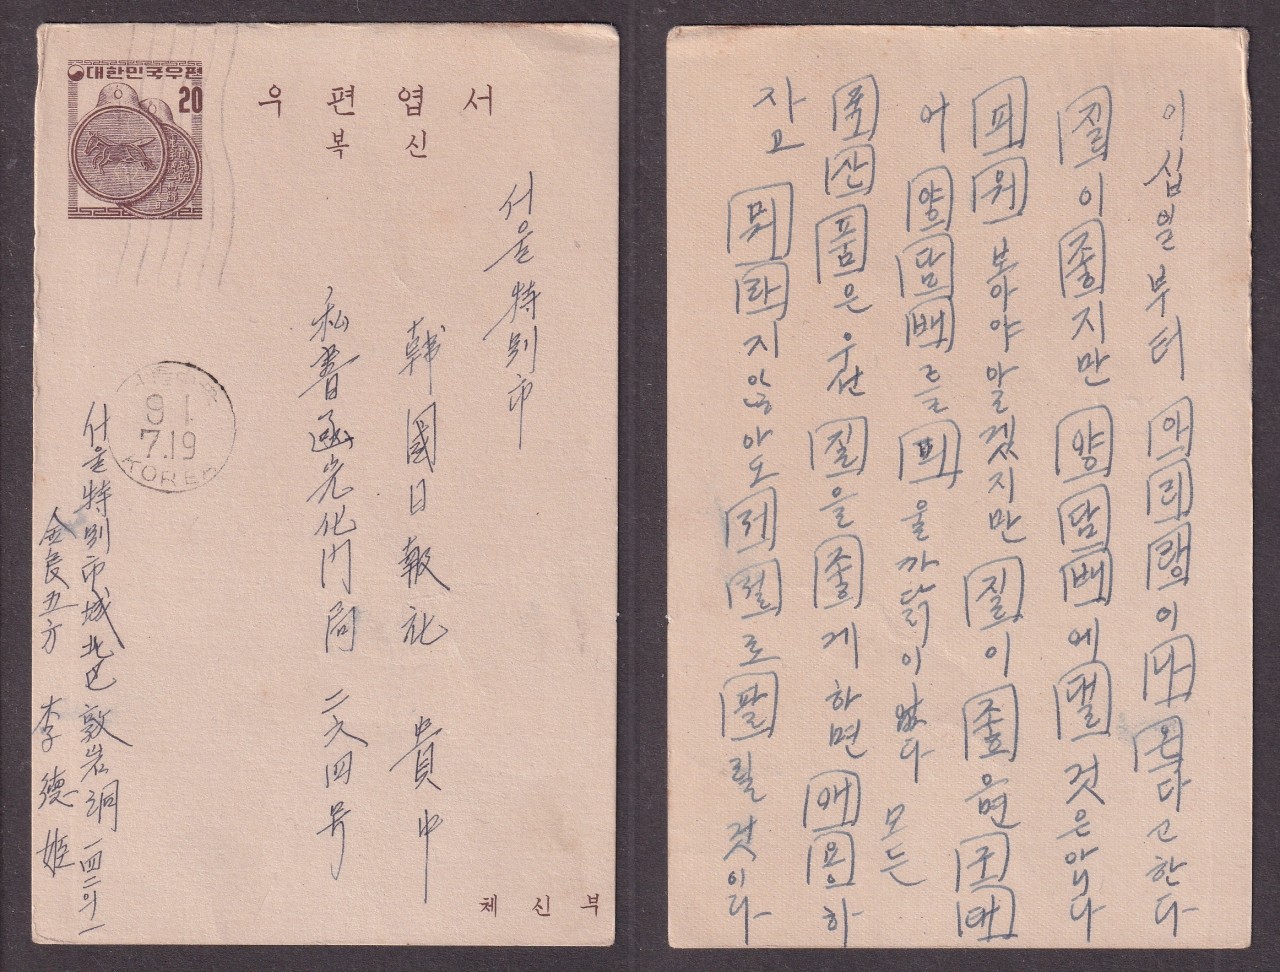 대한민국우편
20
우편엽서
복신
서울特別市
韓國日報社 貴中
私書函光化門局 二六四号
91
7.19
KOREA
서울特別市城北區敦岩洞一四二의一
金良五方 李德姬
체신부
이십일부터 아리랑이 나온다고 한다
질이 좋지만 양담배에 댈 것은 아니다
피워 보아야 알겠지만 질이 좋으면 구태
어 양담배를 피울 까닭이 없다 모든
국산품은 우선 질을 좋게 하면 애용하
자고 뭐라지 않아도 저절로 팔릴 것이다